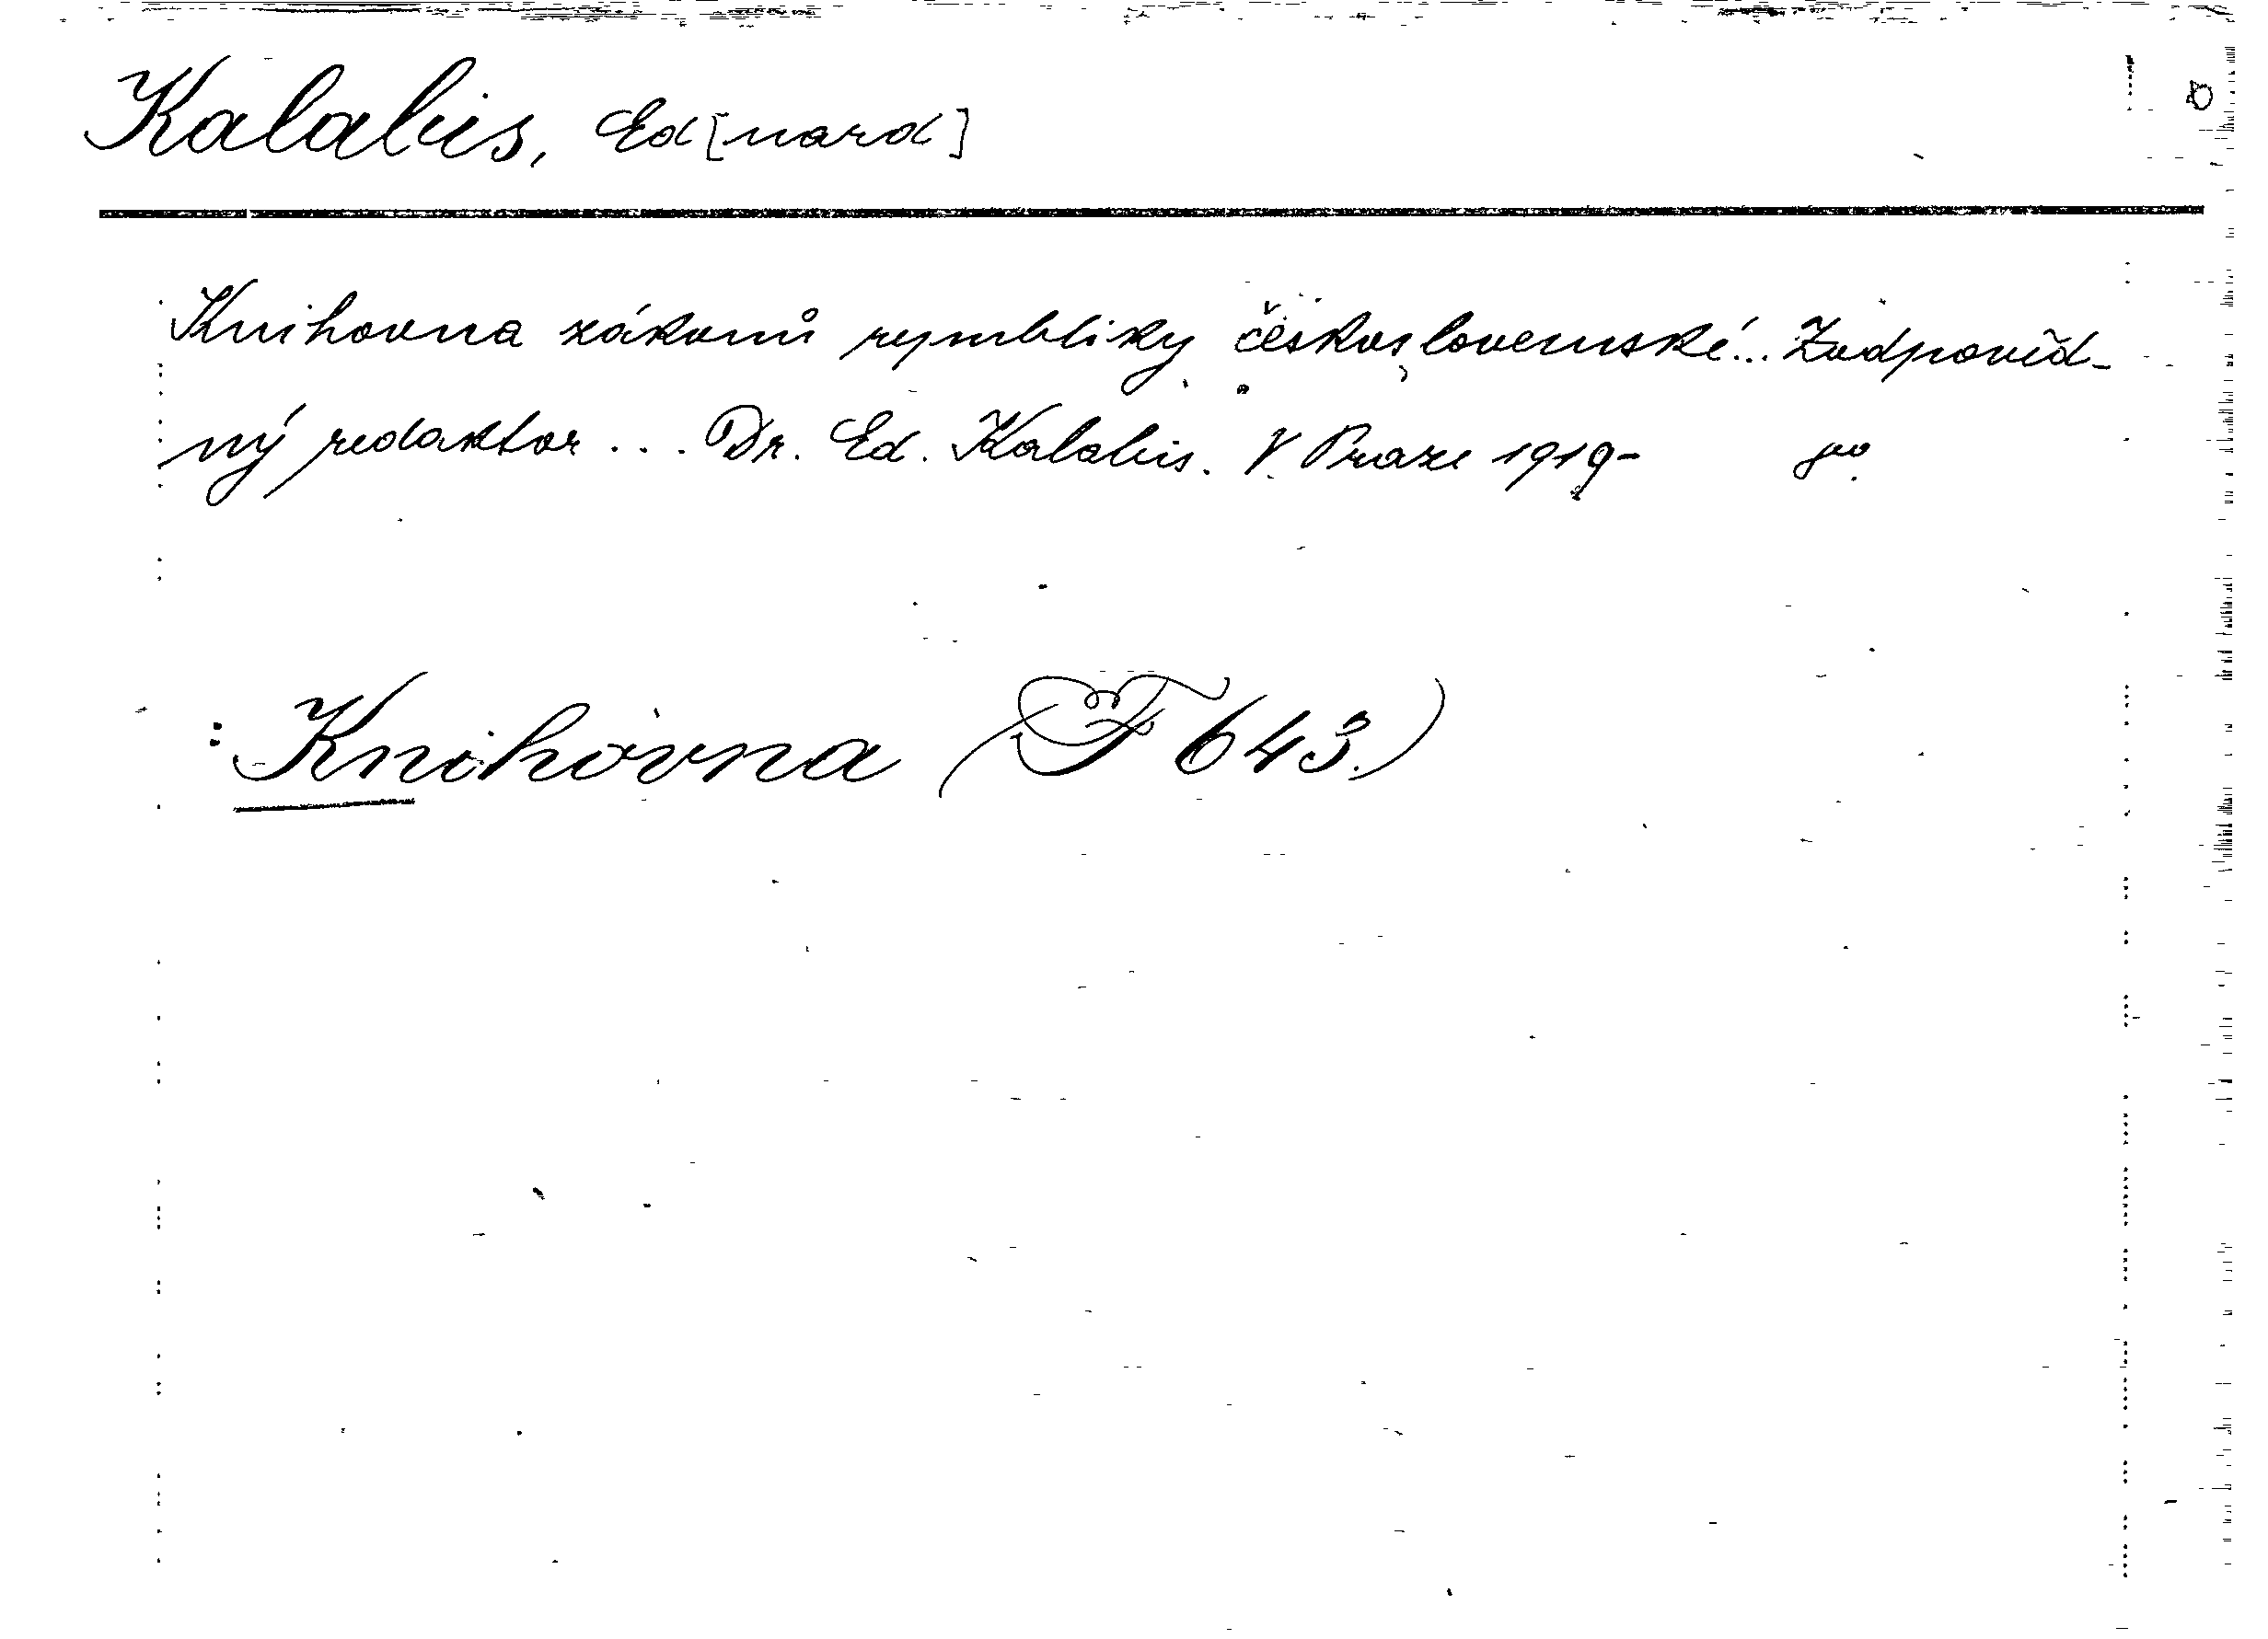 Kalabis, Ed[uard]
Knihovna zákonů republiky československé... Zodpověd-
ný redaktor... Dr. Ed. Kalabis. V Praze 1919- 8°.
: Knihovna (F 643.)